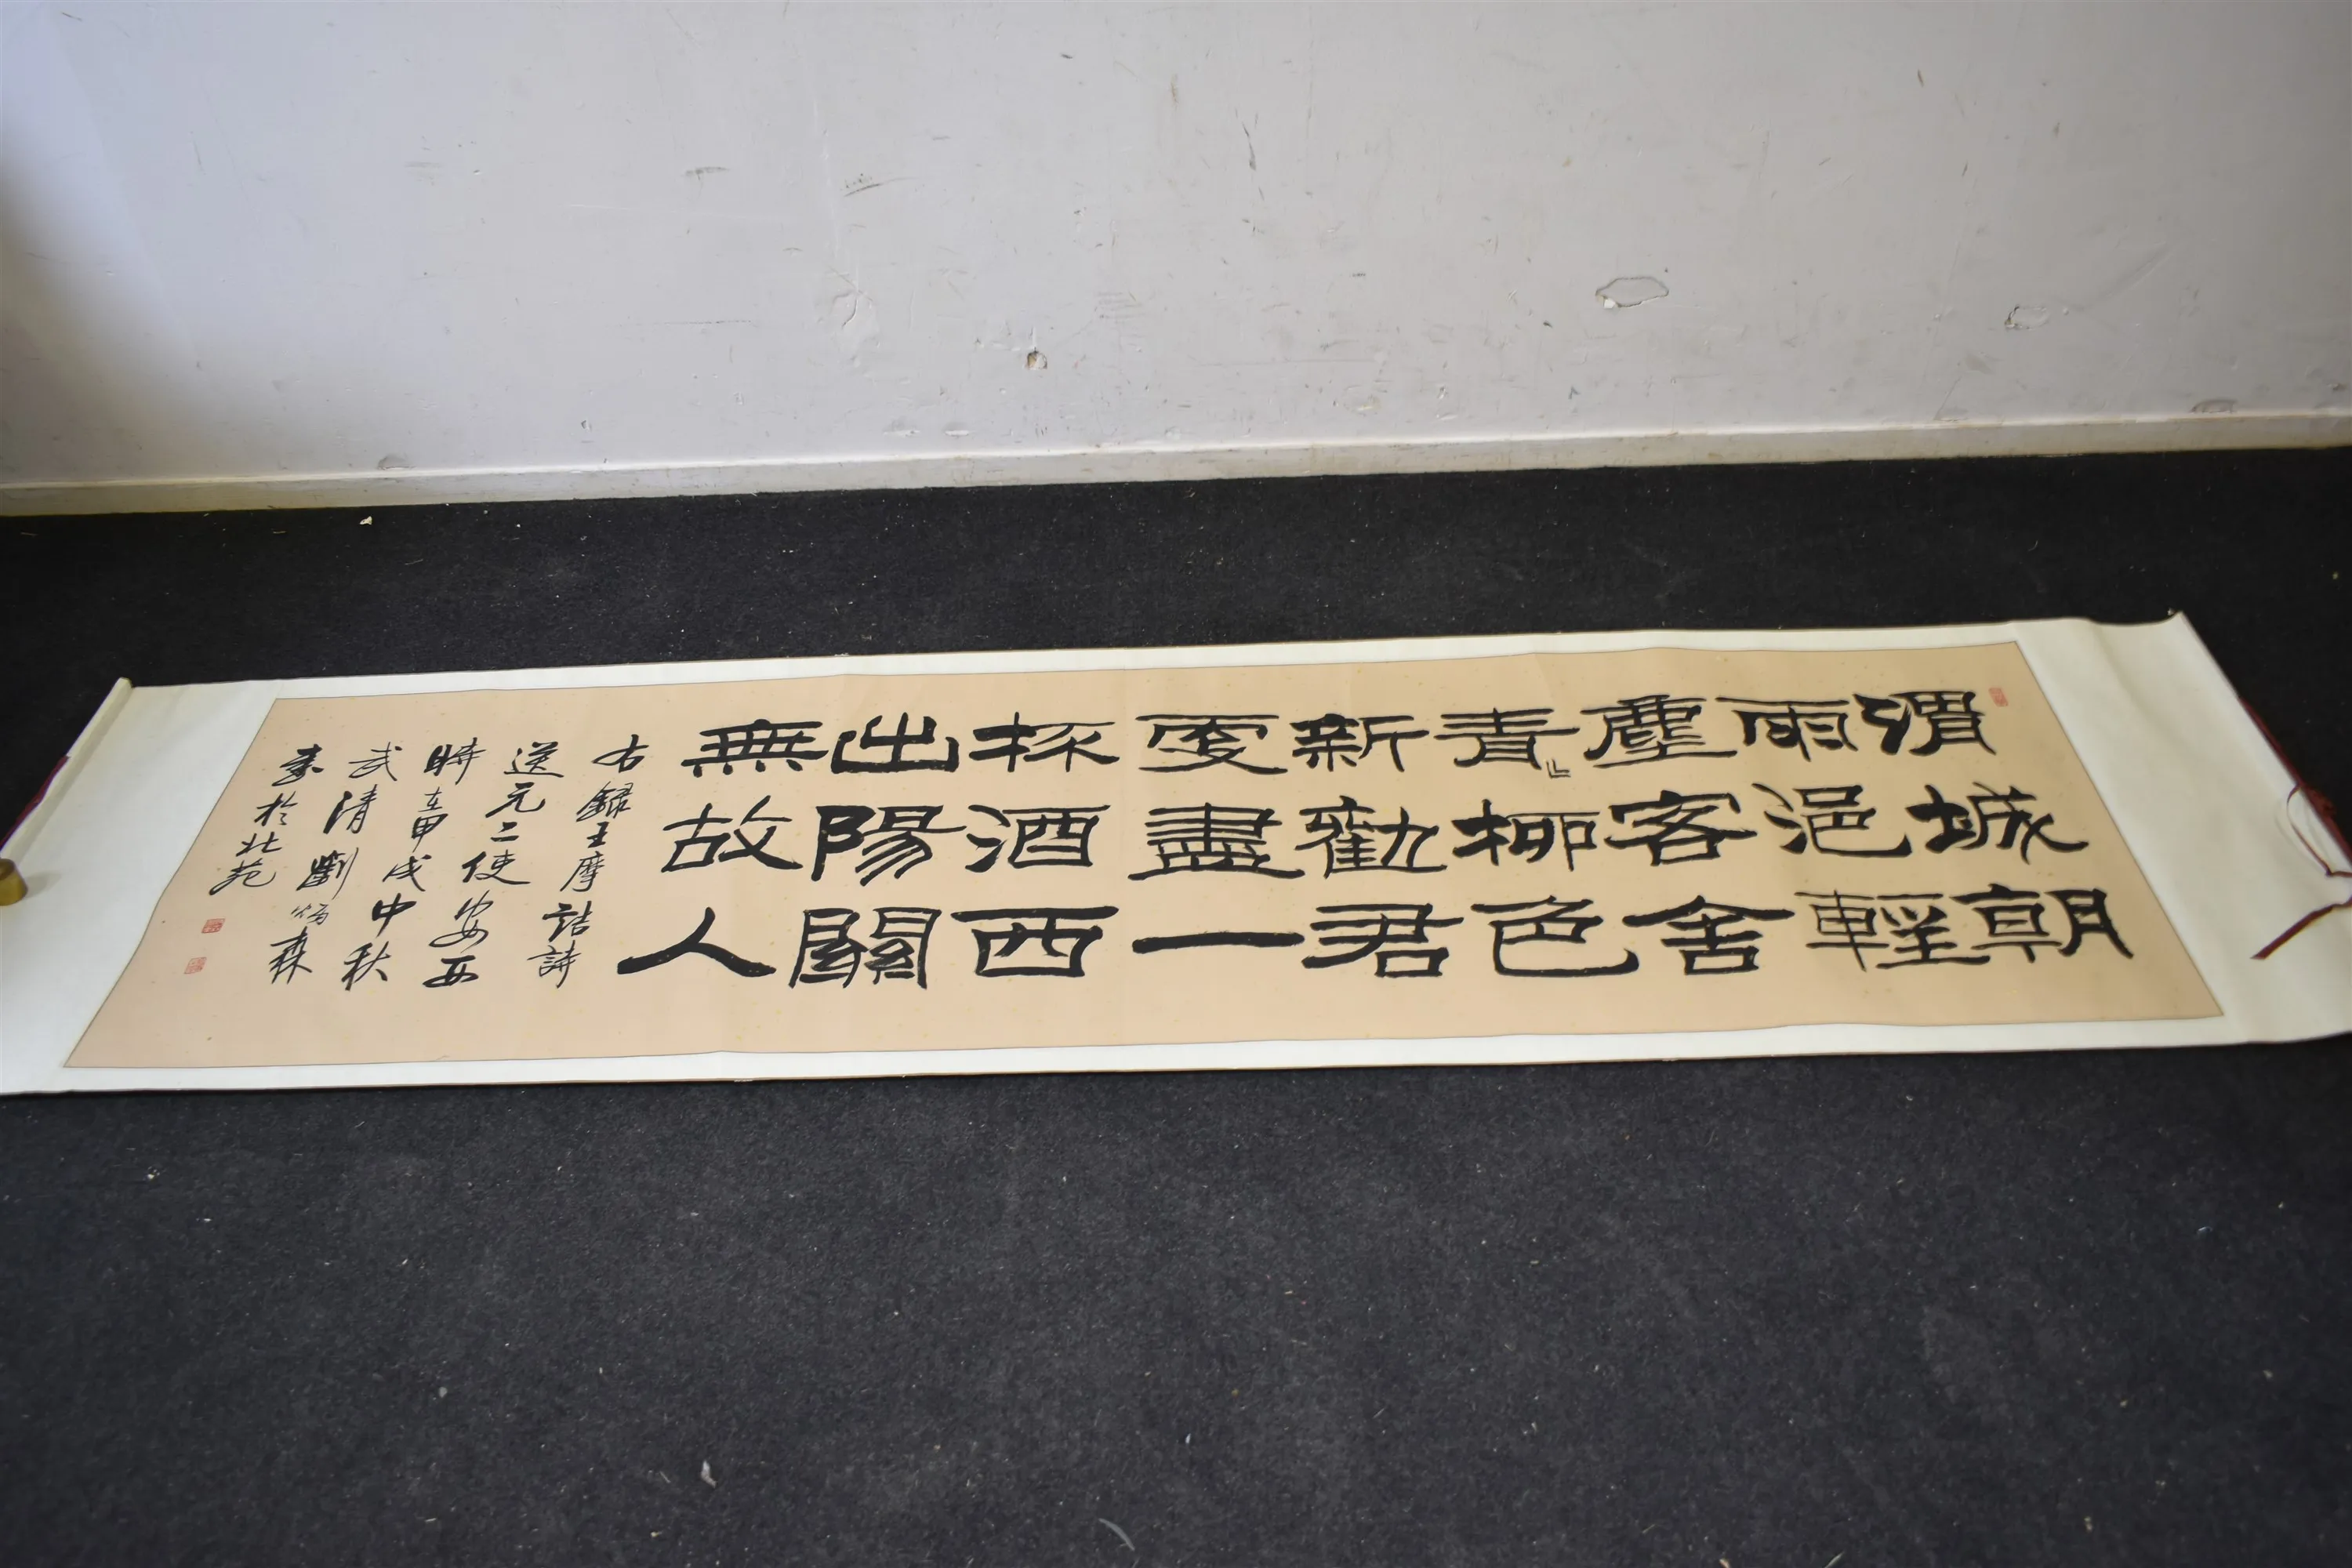 渭城朝
雨浥輕
塵客舍
青〻柳色
新勸君
更盡一
杯酒西
出陽關
無故人
右錄王摩詰詩
送元二使安西
時在甲戌中秋
武清劉炳森
書於北苑